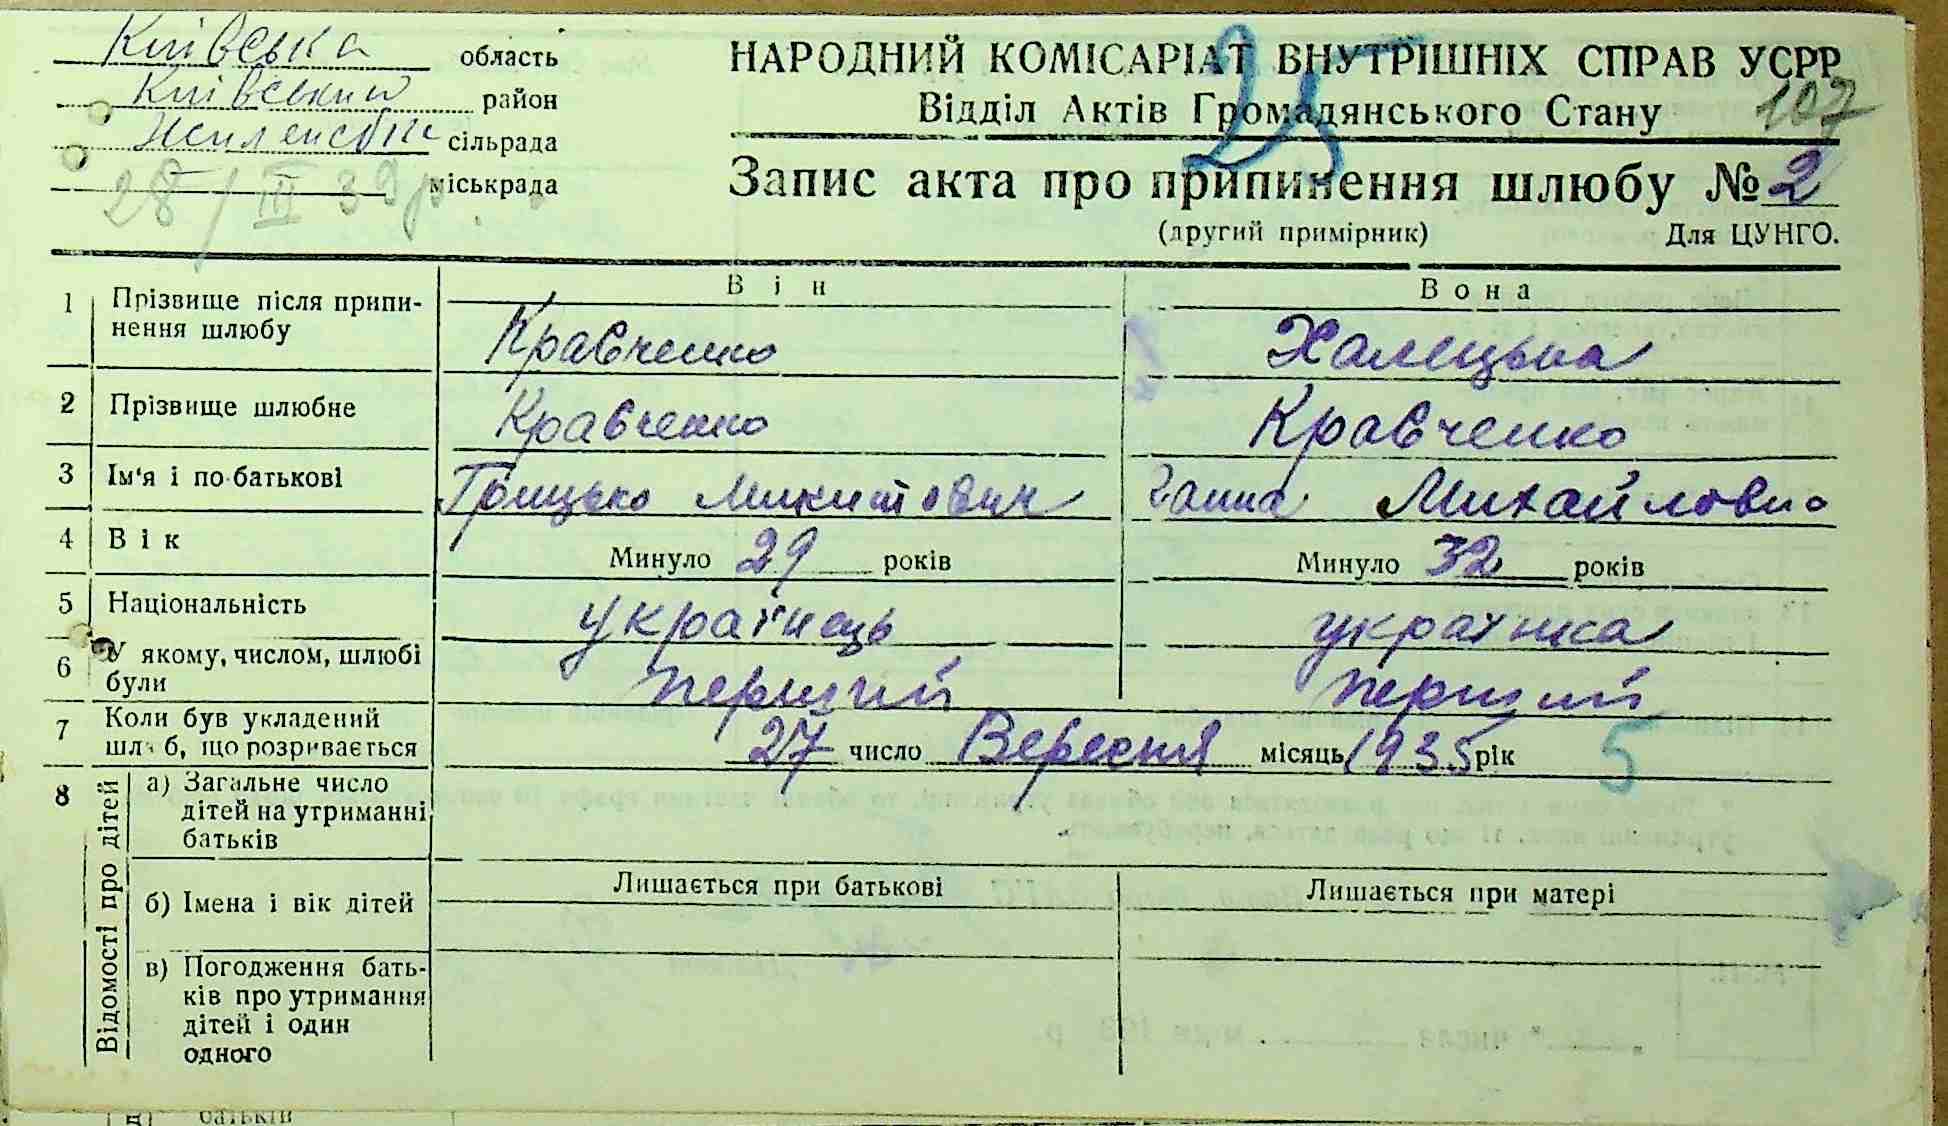 Київська область
Київський район
сільрада
міськрада
28/III 39р
НАРОДНИЙ КОМІСАРІАТ ВНУТРІШНІХ СПРАВ УСРР
Відділ Актів Громадянського Стану
107
25
Запис акта про припинення шлюбу № 2
(другий примірник) Для ЦУНГО.
Він Вона
1 Прізвище після припи-
нення шлюбу Кравченко Халецька
2 Прізвище шлюбне Кравченко Кравченко
3 Ім'я і по-батькові Грицько Микитович Ганна Михайловна
4 Вік Минуло 29 років Минуло 32 років
5 Національність українець українка
6 У якому, числом, шлюбі
були перший перший
7 Коли був укладений
шлюб, що розривається 27 число Вересня місяць 1935 рік 5
8 Відомості про дітей
а) Загальне число
дітей на утриманні
батьків
б) Імена і вік дітей Лишається при батькові Лишається при матері
в) Погодження бать-
ків про утримання
дітей і один
одного
батьків